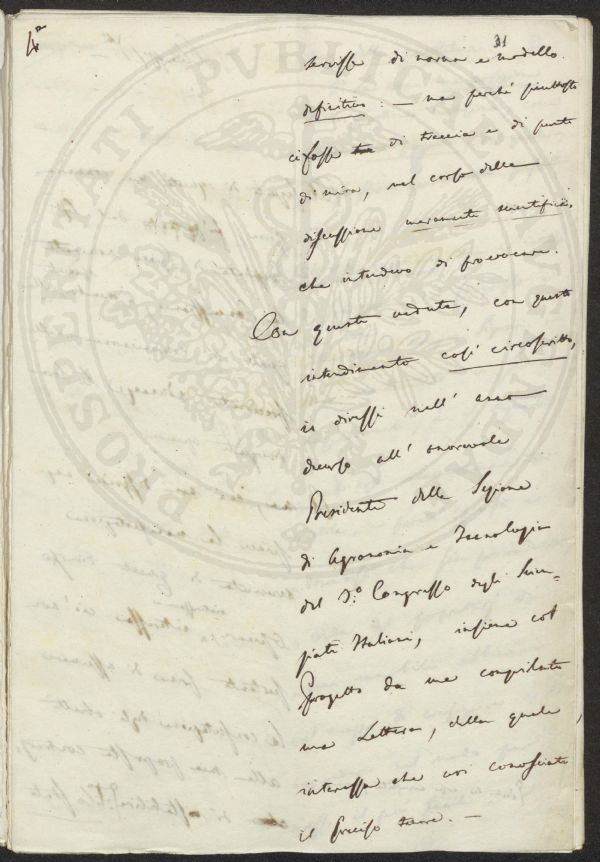 4ª
31
servisse di norma e modello
definitivo: — ma perché piuttosto
ci fosse di traccia e di punto
di mira, nel corso della
discussione meramente scientifica,
che intendevo di provocare.
Con queste vedute, con questo
intendimento così circoscritto,
io diressi nell' anno
decorso all' onorevole
Presidente della Sezione
di Agronomia e Tecnologia
del 7.º Congresso degli Scien-
ziati Italiani, insieme col
Progetto da me compilato
una Lettera, della quale
interessa che voi conosciate
il preciso tenore. —
PROSPERITATI PUBLICAE